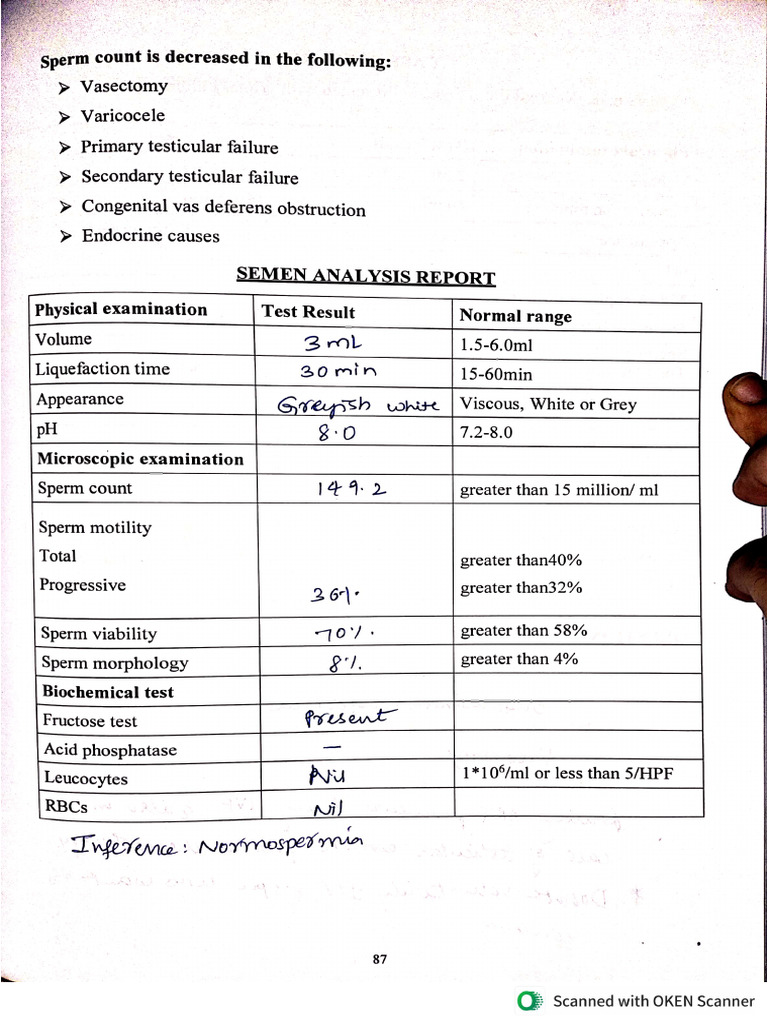 Sperm count is decreased in the following:
➢ Vasectomy
➢ Varicocele
➢ Primary testicular failure
➢ Secondary testicular failure
➢ Congenital vas deferens obstruction
➢ Endocrine causes
SEMEN ANALYSIS REPORT
Physical examination Test Result Normal range
Volume 3 mL 1.5-6.0ml
Liquefaction time 30 min 15-60min
Appearance Greyish white Viscous, White or Grey
pH 8.0 7.2-8.0
Microscopic examination
Sperm count 149.2 greater than 15 million/ ml
Sperm motility
Total greater than40%
Progressive 36% greater than32%
Sperm viability 70%. greater than 58%
Sperm morphology 8%. greater than 4%
Biochemical test
Fructose test Present
Acid phosphatase —
Leucocytes Nil 1*10⁶/ml or less than 5/HPF
RBCs Nil
Inference: Normospermia
87
Scanned with OKEN Scanner